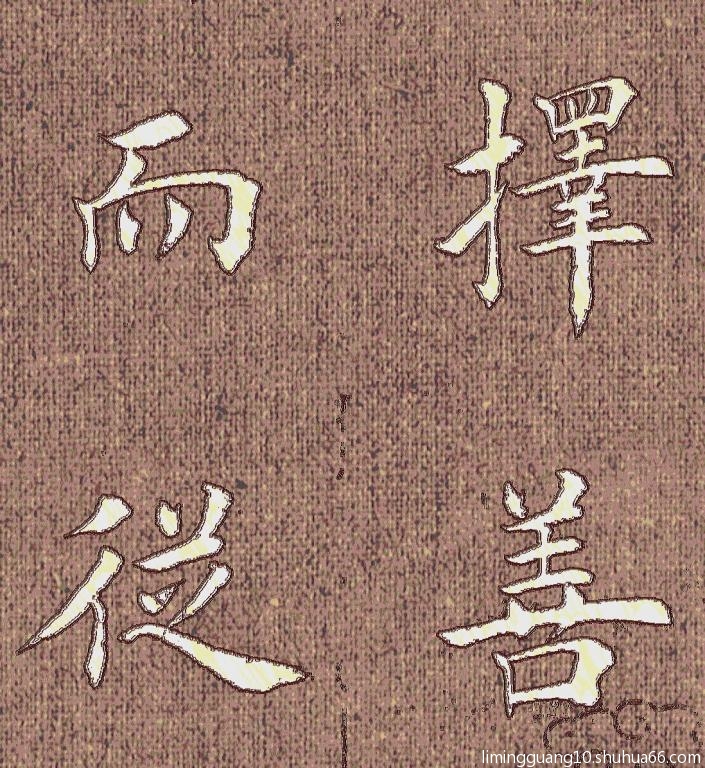 擇善
而從
limingguang10.shuhua66.com